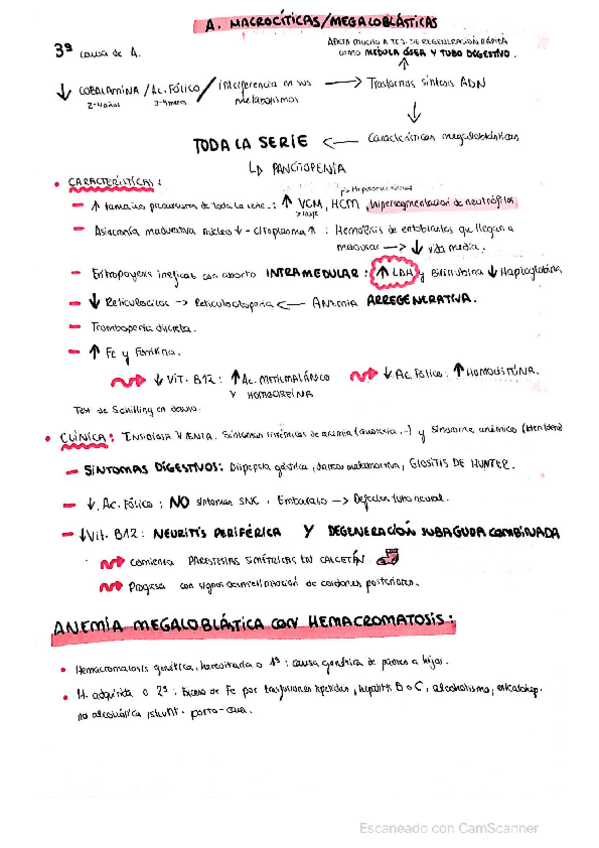 A. MACROCÍTICAS/MEGALOBLÁSTICAS
3ª causa de A.
AFECTA MUCHO A TEJ. DE REGENERACIÓN RÁPIDA
COMO MEDULA ÓSEA Y TUBO DIGESTIVO.
↓ COBALAMINA / AC. FÓLICO / interferencia en sus metabolismos → Trastornos síntesis ADN
2-4 años 3-4 meses
TODA LA SERIE ← Características megaloblásticas
↳ PANCITOPENIA
• CARACTERÍSTICAS:
- ↑ tamaño precursores de toda la serie: ↑ VCM, HCM, hipersegmentación de neutrófilos
- Asincronía madurativa núcleo ↓ - citoplasma ↑: Hemólisis de eritoblastos que llegan a
madurar → ↓ vida media.
- Eritropoyesis ineficaz con aborto INTRAMEDULAR: ↑ LDH y Bilirrubina ↓ Haptoglobina
- ↓ Reticulocitos → Reticulocitopenia ← ANEMIA ARREGENERATIVA.
- Trombopenia discreta.
- ↑ Fe y Ferritina.
↓ VIT. B12: ↑ AC. METILMALÓNICO
Y HOMOCISTEÍNA
↓ AC. Fólico: ↑ HOMOCISTEÍNA.
Test de Schilling en desuso.
• CLÍNICA: INSIDIOSA Y LENTA. Síntomas sistémicos de anemia (anorexia...) y Síndrome anémico
- SÍNTOMAS DIGESTIVOS: Dispepsia gástrica, GLOSITIS DE HUNTER.
- ↓ Ac. Fólico: NO síntomas SNC. Embarazo → Defectos tubo neural.
- ↓ Vit. B12: NEURITIS PERIFÉRICA Y DEGENERACIÓN SUBAGUDA COMBINADA
comienza PARESTESIAS SIMÉTRICAS EN CALCETÍN
Progresa con signos desmielinización de cordones posteriores.
ANEMIA MEGALOBLÁSTICA CON HEMACROMATOSIS:
• Hemacromatosis genética, hereditaria o 1ª: causa genética de padres a hijos.
• H. adquirida o 2ª: Exceso de Fe por trasfusiones repetidas, hepatitis B o C, alcoholismo, esteatohep.
no alcohólica, shunt porto-cava.
Escaneado con CamScanner